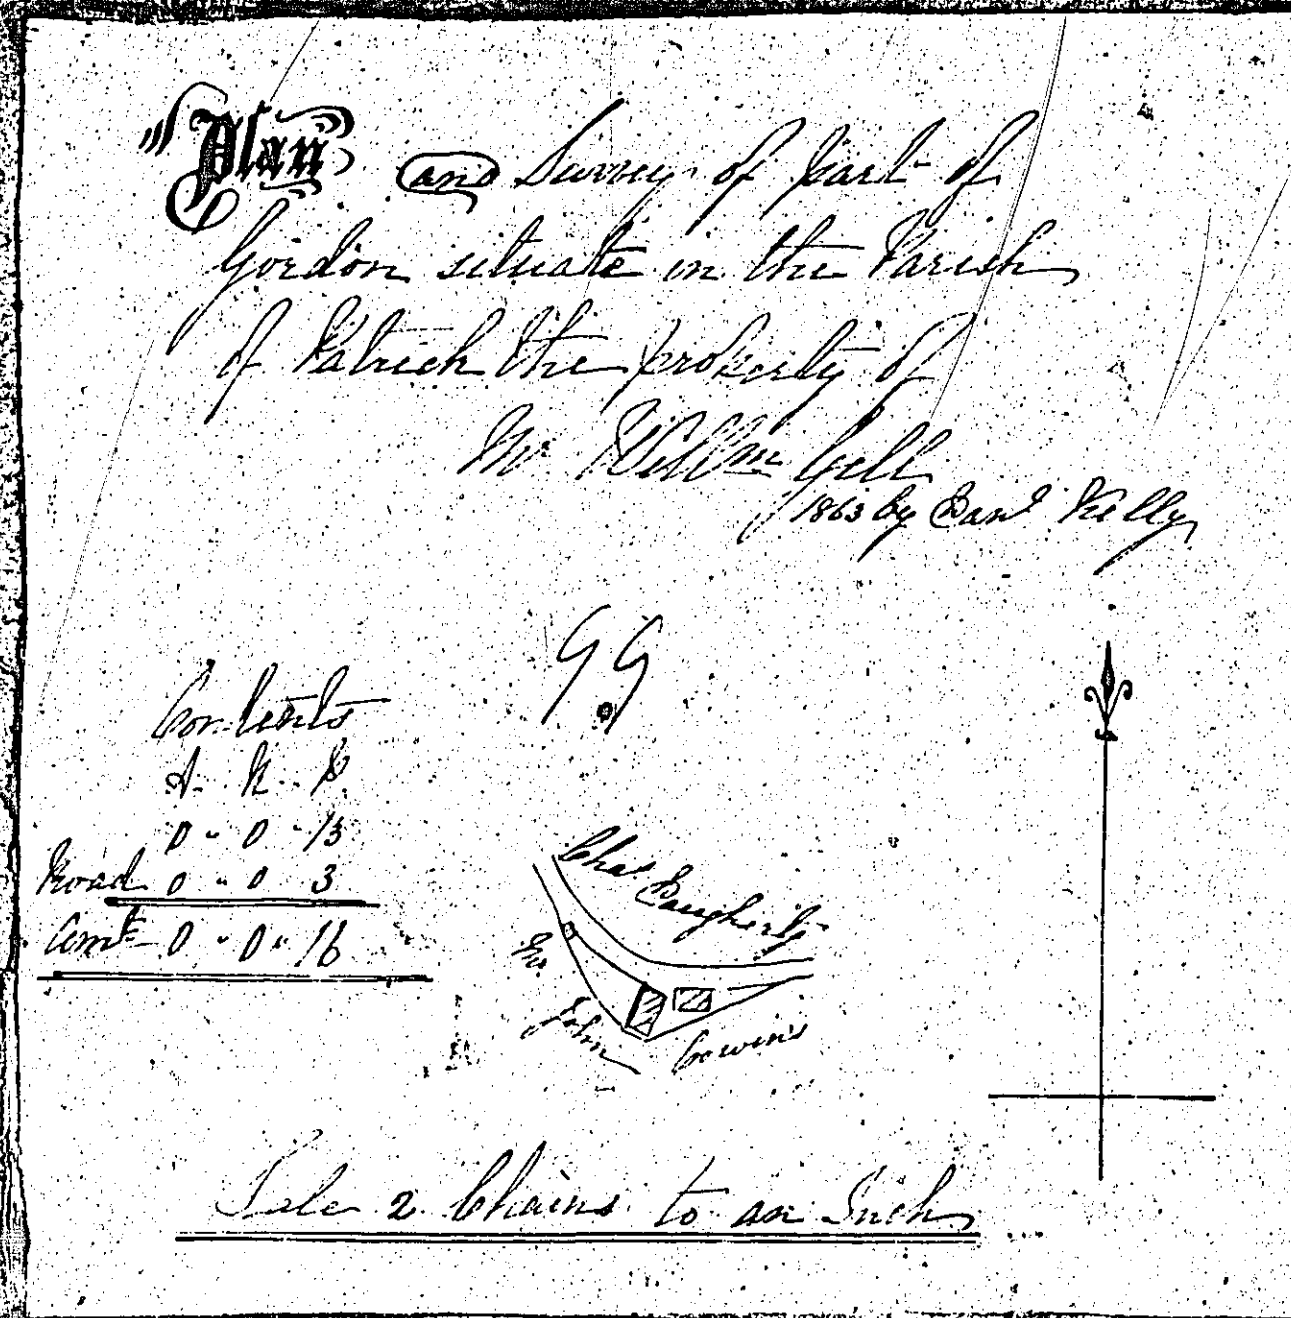 Plan and Survey of part of
Gordon situate in the Parish
of Patrick the property of
Mr Willm Gell
1863 by Danl Kelly
G G
Contents
A. R. P.
0 - 0 - 13
Road 0 - 0 3
Amt 0 - 0 - 16
Chas Daugherty
Mr
John Cowin's
Scale 2 Chains to an Inch